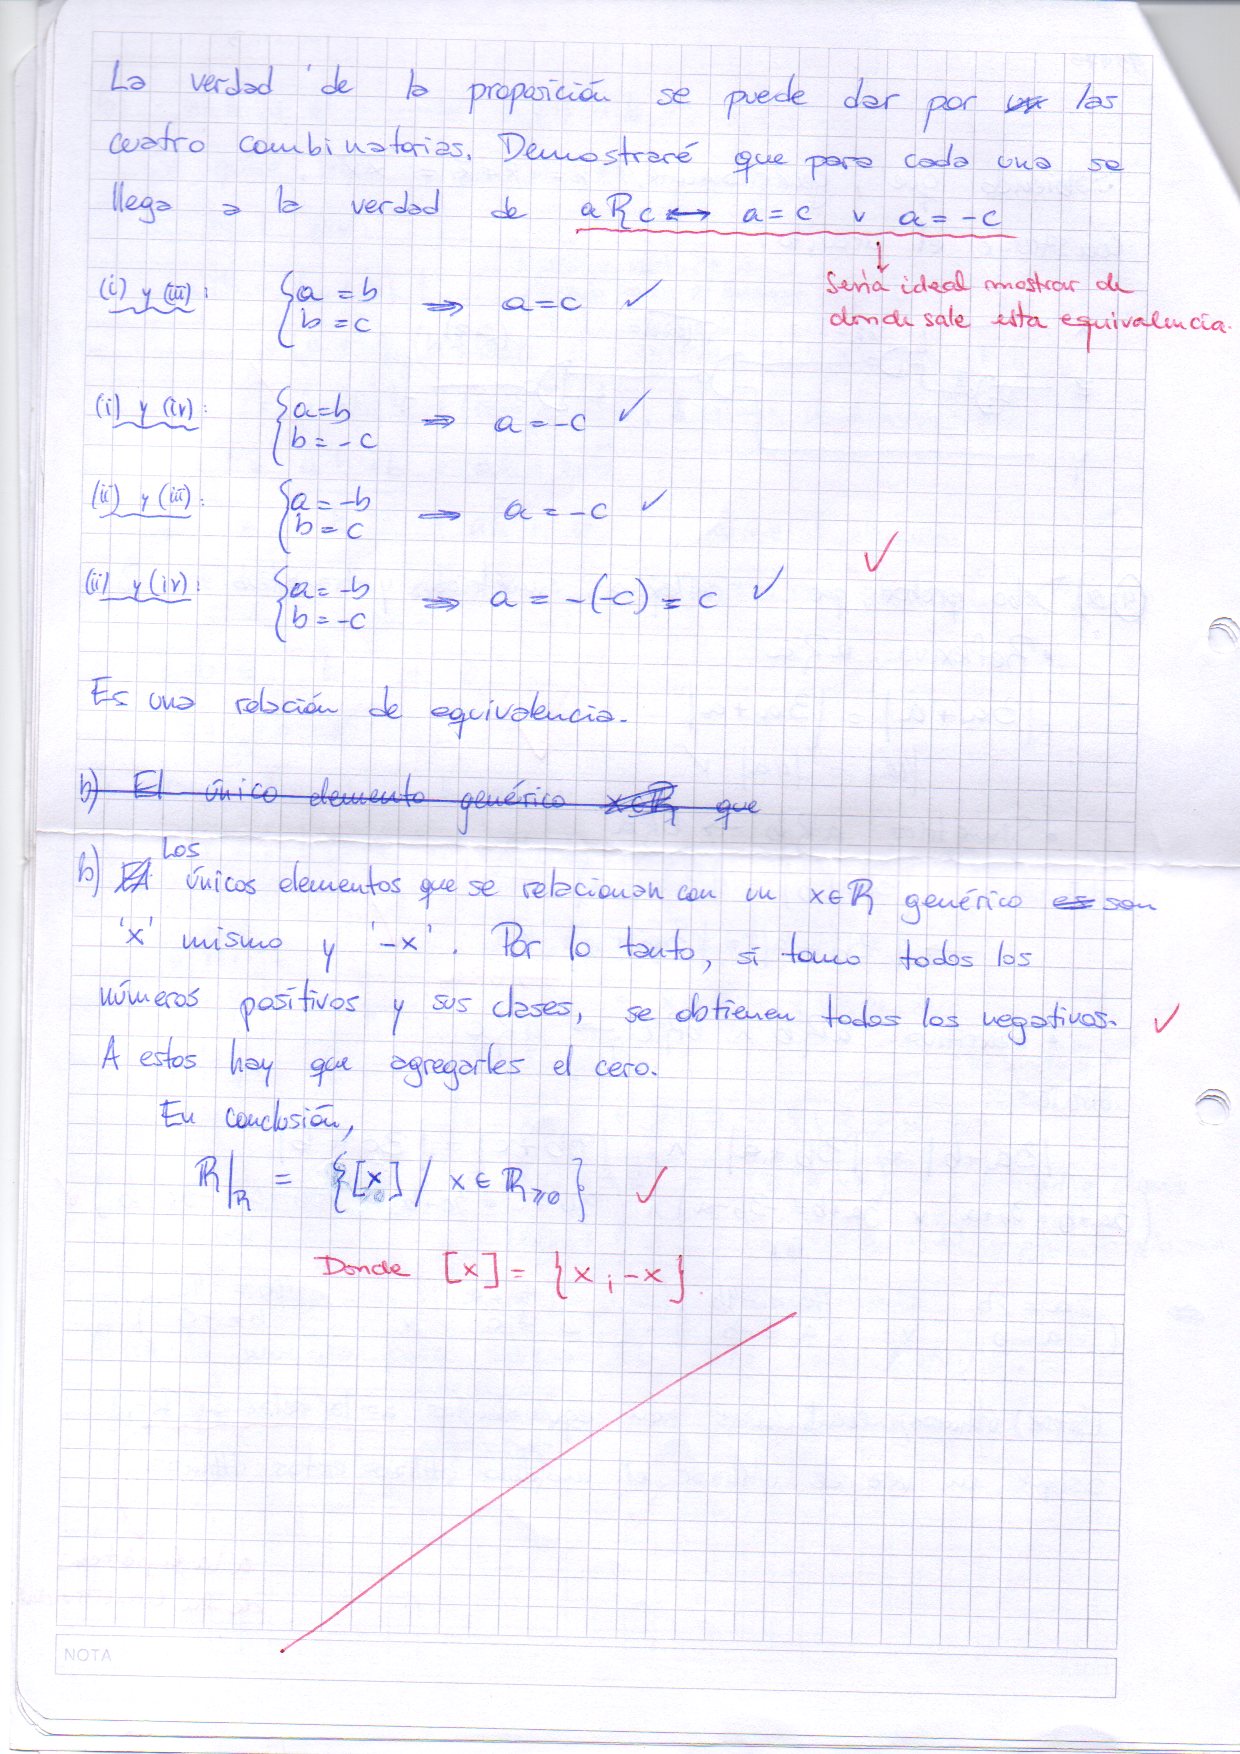 La verdad de la proposición se puede dar por las
cuatro combinatorias. Demostraré que para cada una se
llega a la verdad de aRc ↔ a = c v a = -c
Sería ideal mostrar de
donde sale esta equivalencia.
(i) y (iii): { a = b ⇒ a = c ✓
b = c
(i) y (iv): { a = b ⇒ a = -c ✓
b = -c
(ii) y (iii): { a = -b ⇒ a = -c ✓
b = c
✓
(ii) y (iv): { a = -b ⇒ a = -(-c) = c ✓
b = -c
Es una relación de equivalencia.
b) El único elemento genérico x∈R que
Los
b) únicos elementos que se relacionan con un x∈R genérico es son
'x' mismo y '-x'. Por lo tanto, si tomo todos los
números positivos y sus clases, se obtienen todos los negativos. ✓
A estos hay que agregarles el cero.
En conclusión,
R/R = {[x] / x ∈ R≥0} ✓
Donde [x] = {x ; -x}.
NOTA